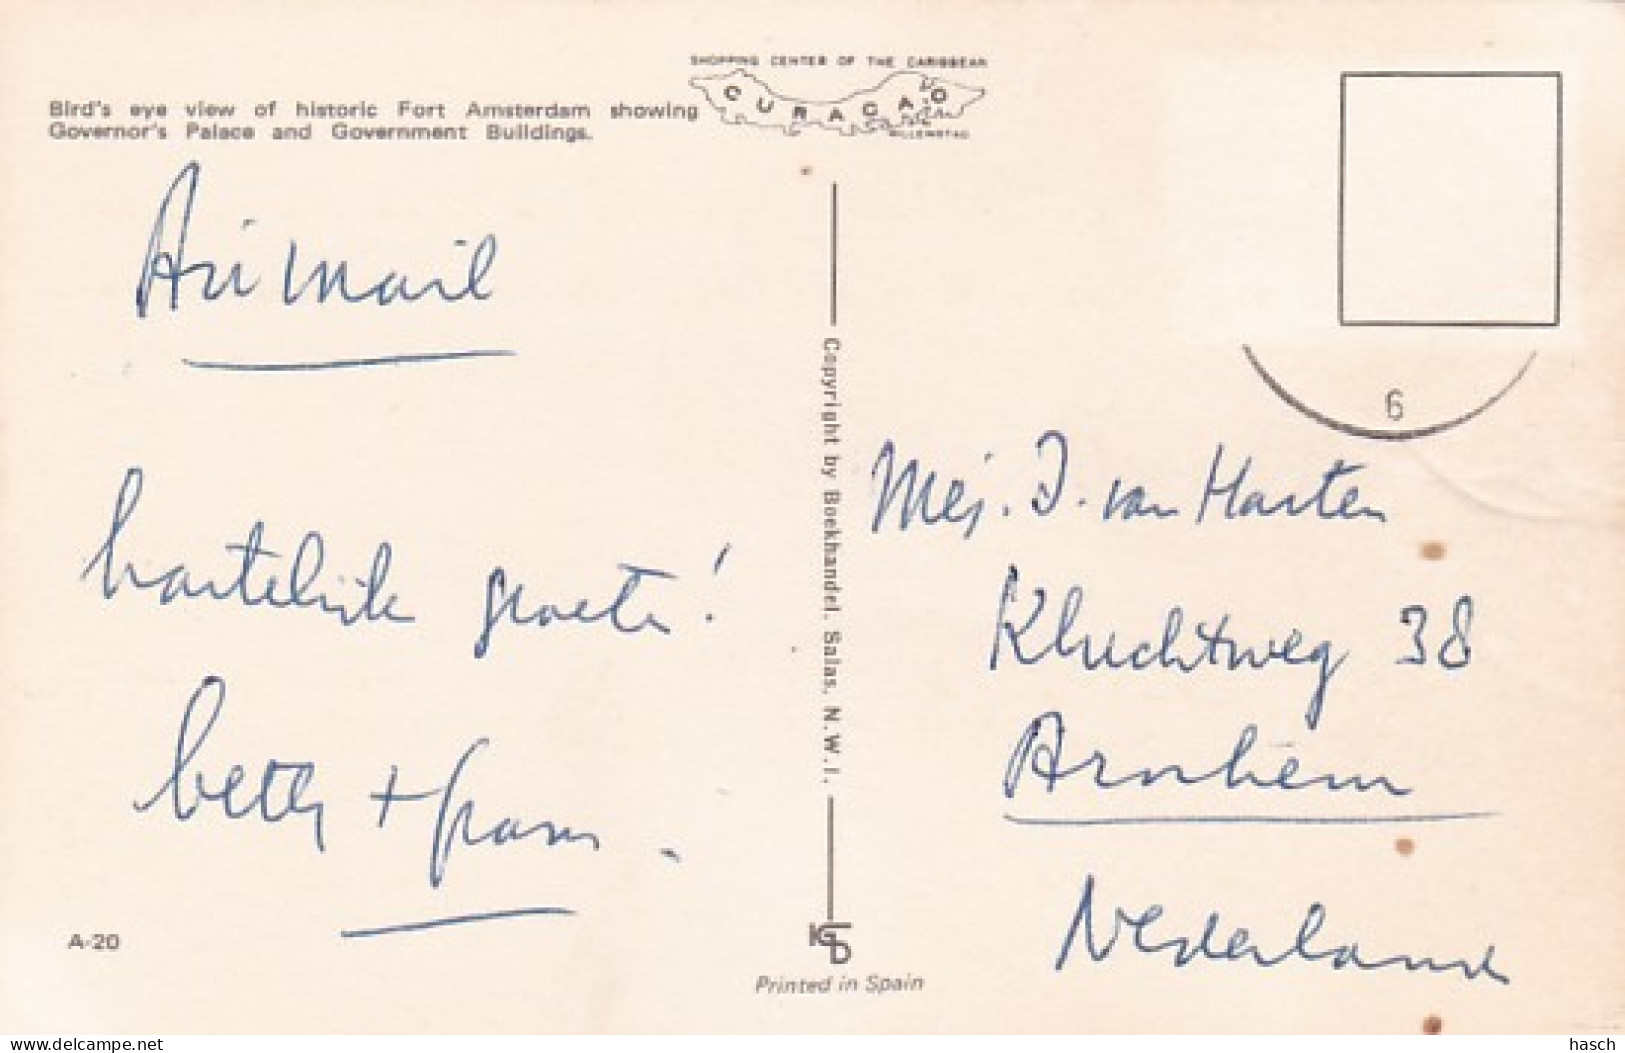 SHOPPING CENTER OF THE CARIBBEAN
CURAÇAO
WILLEMSTAD
Bird's eye view of historic Fort Amsterdam showing
Governor's Palace and Government Buildings.
Air mail
hartelijke groeten!
betty +
Copyright by Boekhandel. Salas. N.W.I.
6
Mej. J. van Harten
Kluchtweg 38
Arnhem
Nederland
A-20
KGD
Printed in Spain
www.delcampe.net
hasch